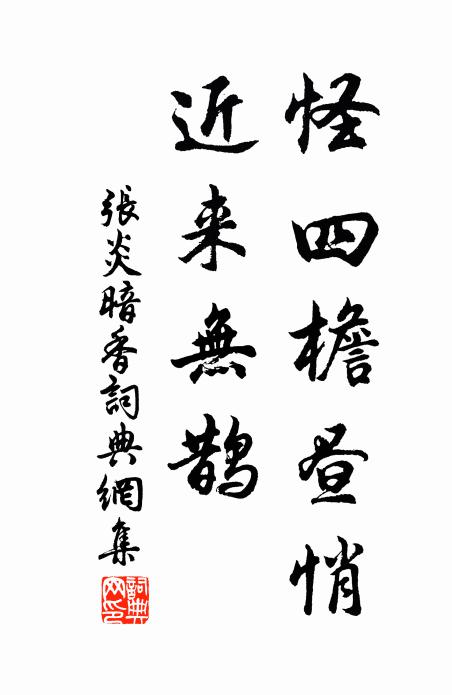 怪四檐昼悄
近来無鹊
張炎暗香詞典網集
詞典网印